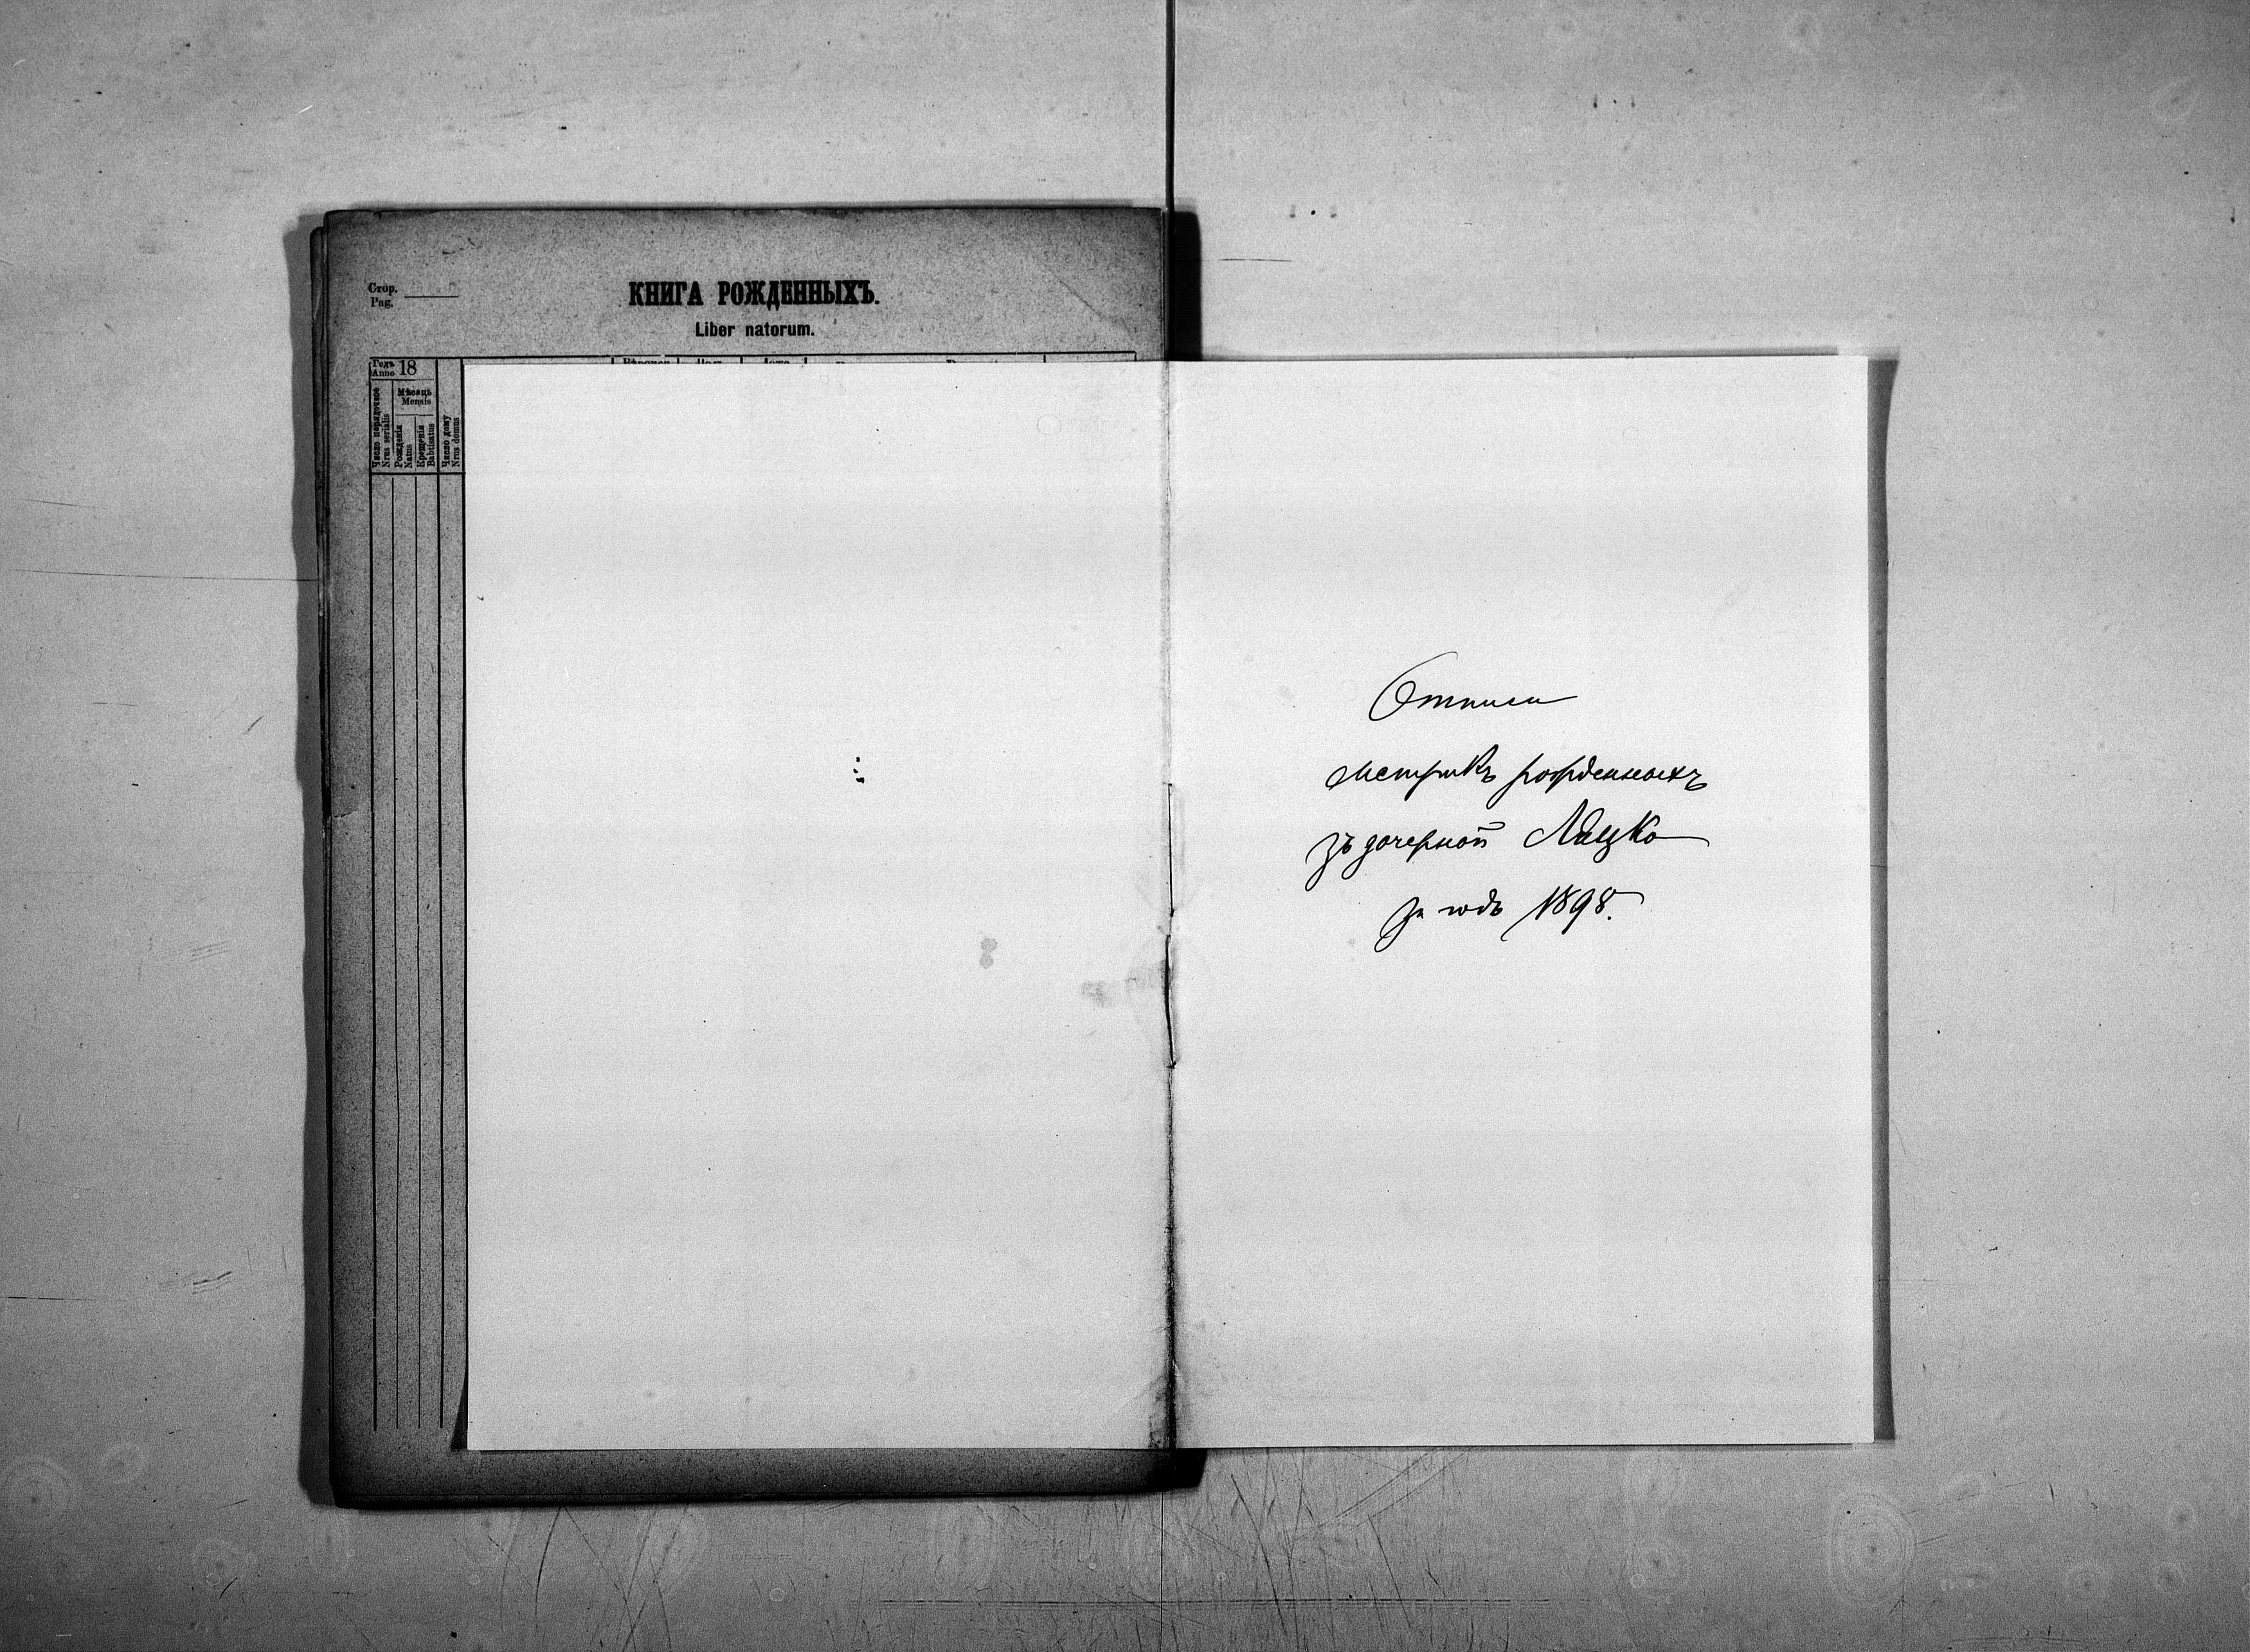 Стор.
Pag.
КНИГА РОЖДЕННЫХЪ.
Liber natorum.
Годъ 18
Anno
Мѣсяць
Mensis
Число порядочное
Nrus serialis
Рожденія
Natus
Крещенія
Babtisatus
Число дому
Nrus domus
Отписи
метрикъ рожденныхъ
зъ дочерной Ляцко
за годъ 1898.